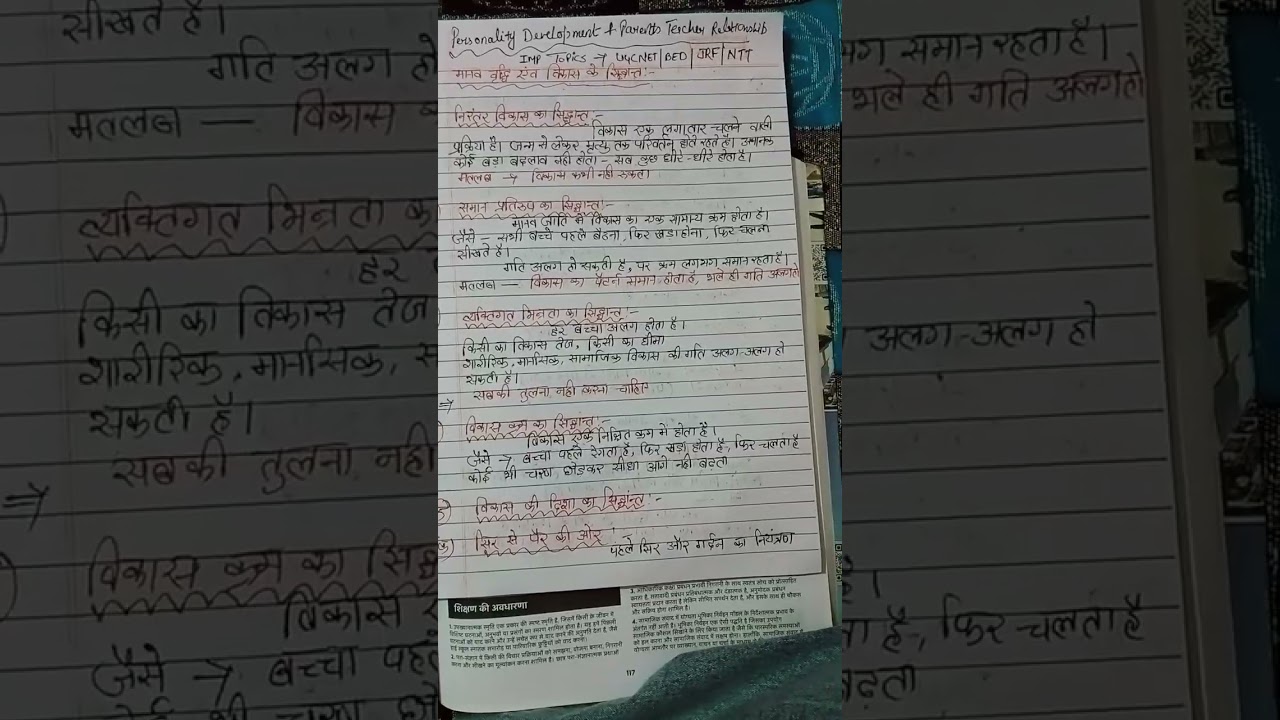 Personality Development & Parents Teacher Relationship
IMP TOPICS → UGCNET|BED|JRF|NTT
मानव वृद्धि एवं विकास के सिद्धान्त:-
निरंतर विकास का सिद्धान्त:-
विकास एक लगातार चलने वाली
प्रक्रिया है। जन्म से लेकर मृत्यु तक परिवर्तन होते रहते है। अचानक
कोई बड़ा बदलाव नही होता - सब कुछ धीरे-धीरे होता है।
मतलब → विकास कभी नही रुकता
समान प्रतिरुप का सिद्धान्त:-
मानव जाति में विकास का एक सामान्य क्रम होता है।
जैसे - सभी बच्चे पहले बैठना, फिर खडा होना, फिर चलना
सीखते है।
गति अलग हो सकती है, पर क्रम लगभग समान रहता है।
मतलब — विकास का पैटर्न समान होता है, भले ही गति अलग हो
व्यक्तिगत भिन्नता का सिद्धान्त:-
हर बच्चा अलग होता है।
किसी का विकास तेज, किसी का धीमा
शारीरिक, मानसिक, सामाजिक विकास की गति अलग-अलग हो
सकती है।
⇒ सबकी तुलना नही करना चाहिए
विकास क्रम का सिद्धान्त:-
विकास एक निश्चित क्रम में होता है।
जैसे → बच्चा पहले रेंगता है, फिर खडा होता है, फिर चलता है
कोई भी चरण छोडकर सीधा आगे नही बढता
विकास की दिशा का सिद्धांत:-
सिर से पैर की ओर:-
पहले सिर और गर्दन का नियंत्रण
शिक्षण की अवधारणा
117